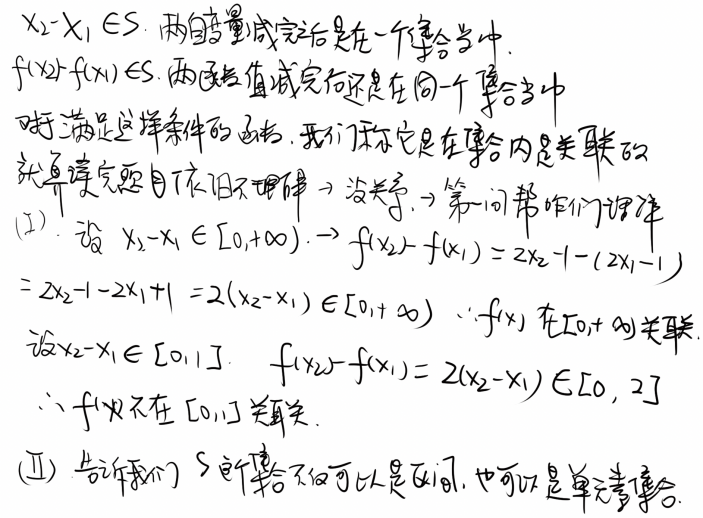 x₂-x₁∈S. 两自变量减完之后是在一个集合当中.
f(x₂)-f(x₁)∈S. 两函数值减完后还是在同一个集合当中
对于满足这样条件的函数, 我们称它是在集合内是关联的
就算读完题目依旧不理解→没关系.→第一问帮咱们理解
(I). 设 x₂-x₁∈[0,+∞).→ f(x₂)-f(x₁)=2x₂-1-(2x₁-1)
=2x₂-1-2x₁+1 =2(x₂-x₁)∈[0,+∞) ∴f(x)在[0,+∞)关联.
设x₂-x₁∈[0,1]. f(x₂)-f(x₁)=2(x₂-x₁)∈[0,2]
∴f(x)不在[0,1]关联.
(II) 告诉我们 S这个集合不仅可以是区间, 也可以是单元素集合.